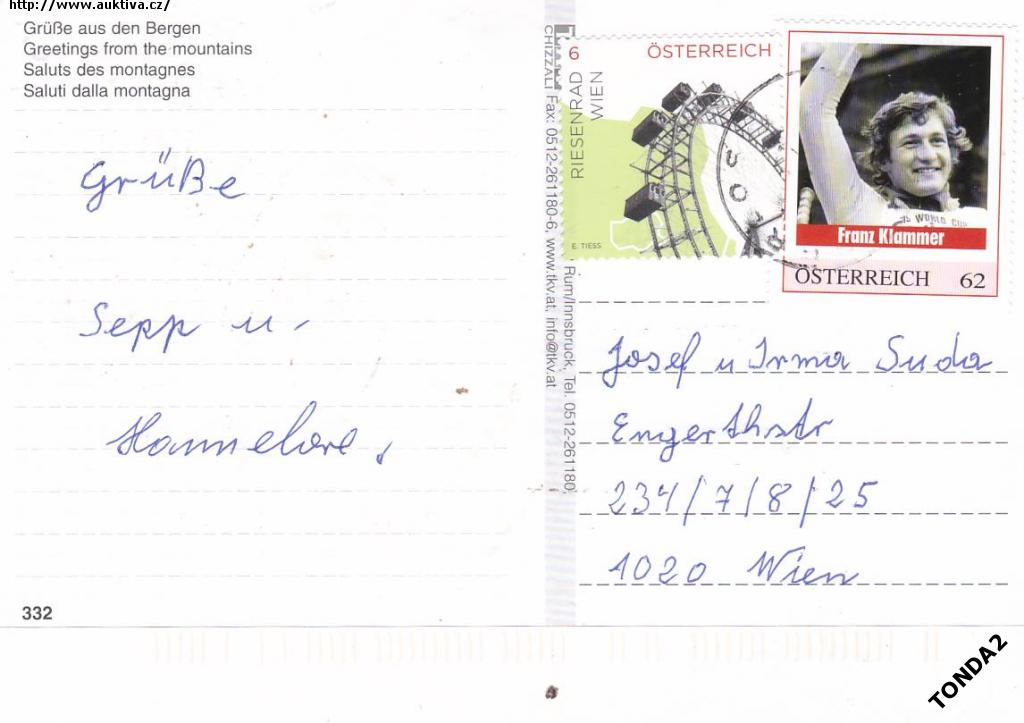 http://www.auktiva.cz/
Grüße aus den Bergen
Greetings from the mountains
Saluts des montagnes
Saluti dalla montagna
Grüße
Sepp u.
Hannelore,
332
CHIZZALI Fax: 0512-261180-6, www.tkv.at, info@tkv.at
Rum/Innsbruck, Tel. 0512-261180,
6
ÖSTERREICH
RIESENRAD
WIEN
E. TIESS
WORLD CUP
Franz Klammer
ÖSTERREICH 62
Josef u Irma Suda
Engerthstr
234/7/8/25
1020 Wien
TONDA2